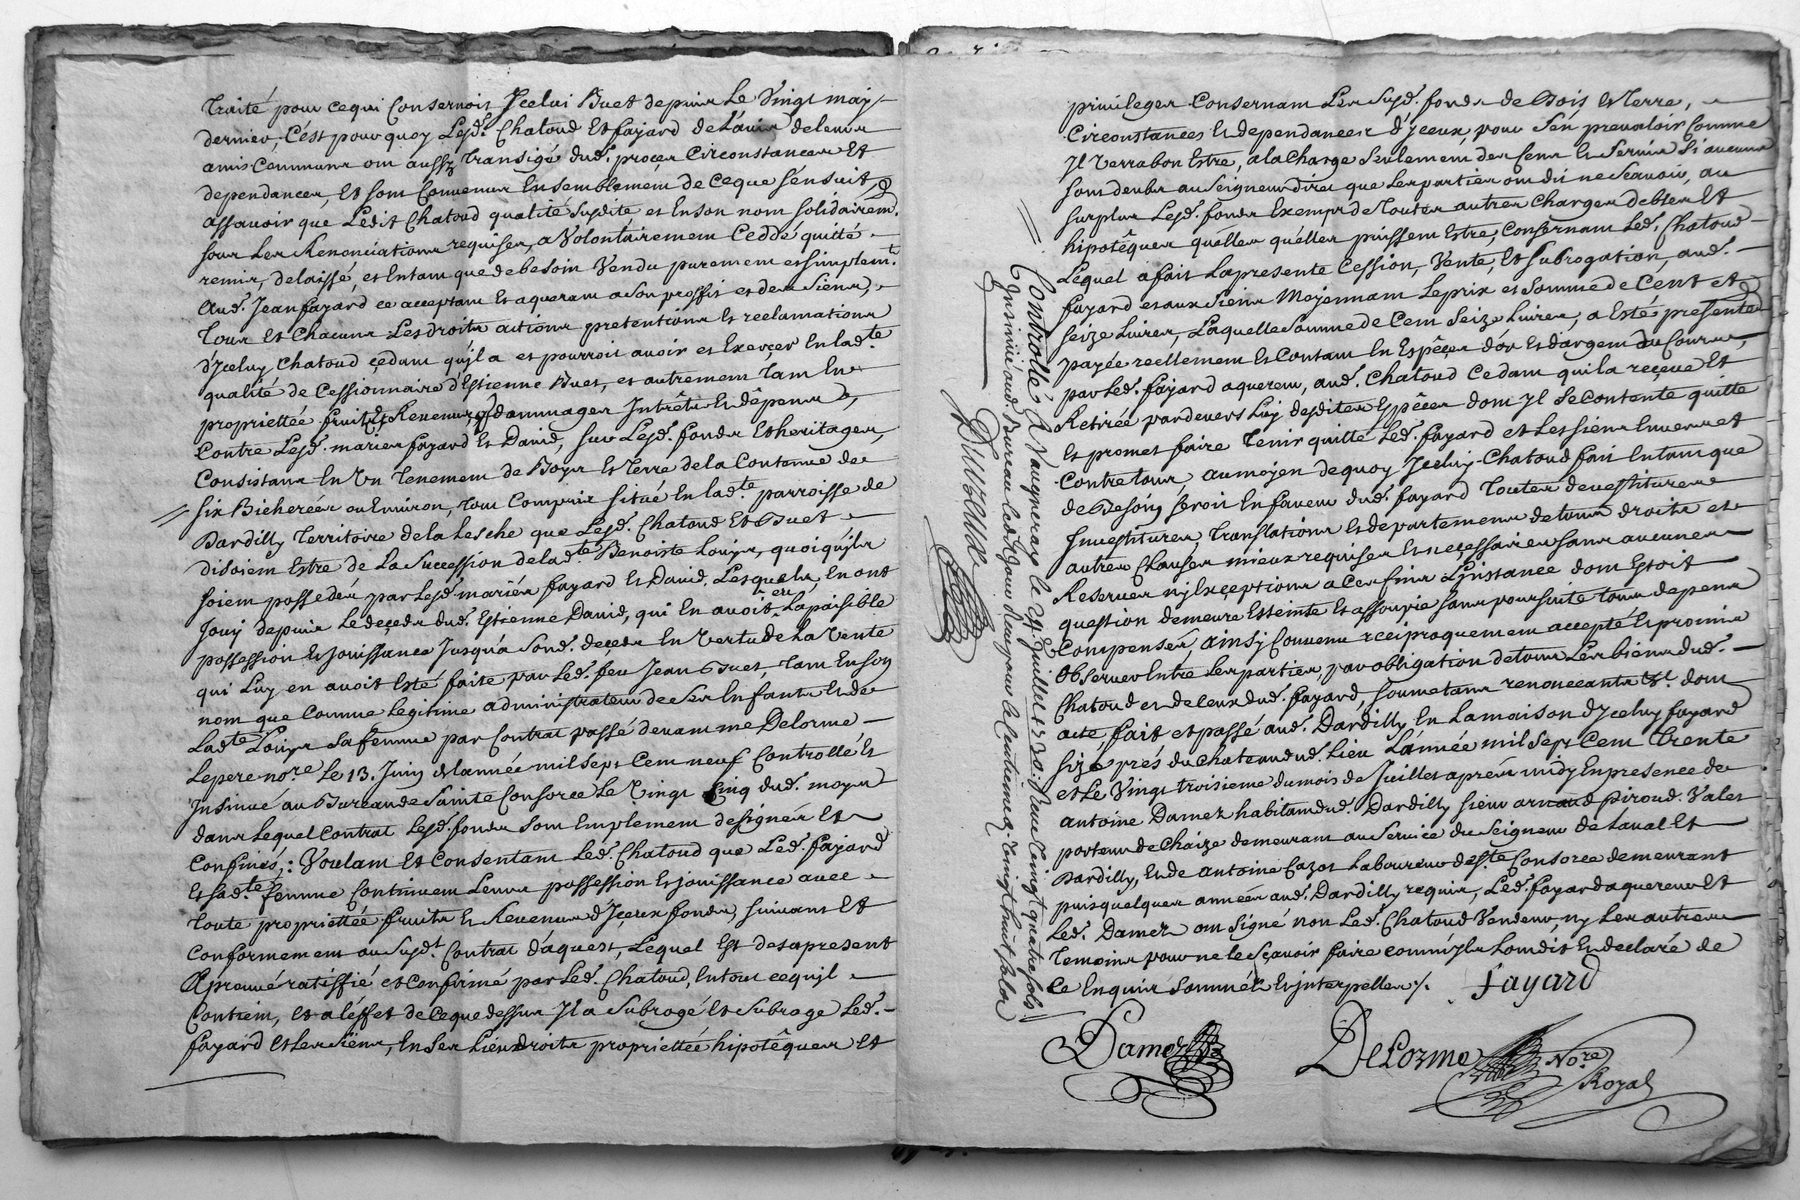 traité pour cequi Consernoit Jcelui Buet depuis Le Vingt may
dernier, C'ést pour quoy Lesd. Chatoud Et fayard de L'avis de leurs
amis Communs ont aussy transigé dud. procez Circonstances Et
dependances, Et sont Convenus Ensemblement de Ceque s'énsuit
assavoir que Ledit Chatoud qualité susdite et En son nom solidairem.
sous Les Renonciations requises, a Volontairement Ceddé quitté
remis, delaissé, et Entant que de besoin Vendu purement et simplem.t
aud. Jean fayard ce acceptant Et aquerant a son proffit et des siens,
tous Et Chacuns Les droits actions pretentions Et reclamations
d'Jceluy Chatoud çedant qu'jl a et pourroit avoir et Exerçer En lad.te
qualité de Cessionnaire d'Estienne Buet, et autrement tant En
propriettée fruits Et Revenus, dommages Jntrêts Et dêpens,
Contre Lesd. mariés fayard Et David, sur Lesd. fonds Et heritages,
Consistans En Un tenement de Boys Et terre de la Contenue de
six Bicherées ou Environ, tout Compris situé En lad.te parroisse de
Dardilly territoire de la Lesche que Lesd. Chatoud Et Buet
disoient Estre de La Succession de lad.te Benoiste Loüys, quoi qu'jls
soient possedés par Lesd. mariés fayard Et David, Lesquels, En ont
Jouy depuis Le deçeds dud. Estienne David, qui En avoit Eu La paisible
possession Et jouissance Jusqu'a son d. deçeds En Vertu de La Vente
qui Luy en avoit Esté faite par Led. feu Jean Buet, tant En son
nom que Comme Legitime administrateur de ses Enfants Et de
Ladte Loüys sa femme par Contrat passé devant me Delorme
Le pere no.re Le 13. Juin de Lannée mil Sept Cent neuf Controllé Et
Jnsinué au Bureau de Sainte Consorce Le Vingt Cinq dud. moys
dans Lequel Contrat Lesd. fonds sont Emplement designés Et
Confinés; Voulant Et Consentant Led. Chatoud que Led. fayard
Et sad.te femme Continuent Leurs possession Et jouissance avec
toute propriettée fruits Et Revenus d'Jçeux fonds, suivant Et
Conformement au susd.t Contrat d'aquest, Lequel Est des apresent
Aprouvé ratiffié et Confirmé par Led. Chatoud, En tout cequ'jl
Contient, et a l'éffet de Ceque dessus Jl a Subrogé Et Subroge Led.
fayard Et Les siens, En ses Lieu droits propriettée hipotêques Et
privileges Consernant Les susd. fonds de Bois Et terre,
Circonstances Et dependances d'Jceux, pour s'én prevaloir Comme
Jl Verra bon Estre, a la Charge seulement des Cens Et servis si aucuns
sont deubs au Seigneur direc que Les parties ont dit ne sçavoir, au
surplus Lesd. fonds Exempts de toutes autres Charges debtes Et
hipotêques quélles quélles puissent Estre, Consernant Led. Chatoud
Lequel a fait La presente Cession, Vente, Et Subrogation, aud.
fayard et aux siens Moyennant Le prix et somme de Cent et
seize Livres, Laquelle somme de Cent Seize Livres, a Esté presente
payée reellement Et Contant En Espêçes d'ór Et d'argent du Cours,
par Led. fayard aquereur, aud. Chatoud Cedant qui la reçeue Et
Retirée pardevers Luy desdites Espêces dont Jl se contente quitte
Et promet faire tenir quitte Led. fayard et Les siens Envers et
Contre tous au moyen de quoy Jceluy Chatoud fait Entant que
de Besoin seroit En faveur dud. fayard toutes devestitures
Jnvestitures translations Et departements de tous droits et
autres Clauses mieux requises Et neçessaires sans aucunes
Reserves ny Exceptions a Ces fins L'jnstance dont Estoit
question demeure Esteinte Et assoupie sans poursuite tous depens
Compensés, ainsy Convenu reciproquement accepté Et promis
Observer Entre Les parties, par obligation de tous Les biens dud.
Chatoud et de Ceux dud. fayard, soumetans renoncçants &.a dont
acte, fait et passé aud. Dardilly En La maison d'Jceluy fayard
size prés du Chateau dud. Lieu L'année mil Sept Cent trente
et Le Vingt troisieme du mois de Juillet aprés midy En presence de
antoine Damez habitant dud. Dardilly sieur arnaud Piroud Valet
porteur de Chaize demeurant au Service du Seigneur de Laval Et
Dardilly, Et de antoine Cazot Laboureur de S.te Consorce demeurant
puis quelques années aud. Dardilly requis, Led. fayard aquereur Et
Led. Damez ont signé non Led. Chatoud Vendeur, ny Les autres
temoins pour ne le sçavoir faire comm'jls L'ont dit Et declaré de
Ce Enquis sommés Et jnterpellés ./.
fayard
Damez
DeLorme No.re
Royal
Controllé A Vaugneray le 29. Juillet 1730: Reçu vingt quatre sols